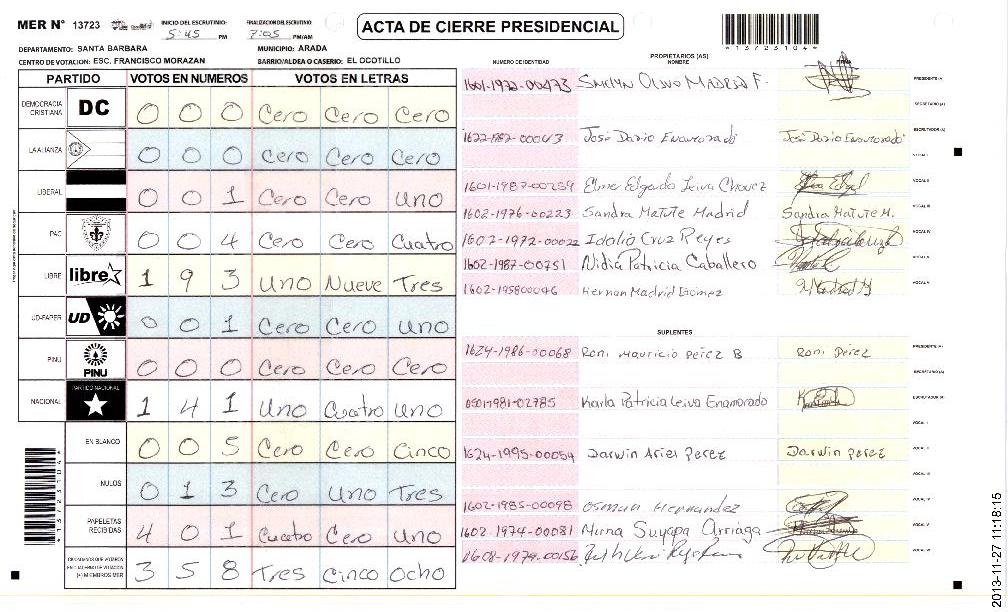 MER N° 13723 INICIO DEL ESCRUTINIO: 5:45 PM FINALIZACION DEL ESCRUTINIO 7:05 PM/AM
ACTA DE CIERRE PRESIDENCIAL
13723104
DEPARTAMENTO: SANTA BARBARA MUNICIPIO: ARADA
CENTRO DE VOTACION: ESC. FRANCISCO MORAZAN BARRIO/ALDEA O CASERIO: EL OCOTILLO
PARTIDO VOTOS EN NUMEROS VOTOS EN LETRAS
DEMOCRACIA CRISTIANA DC 0 0 0 Cero Cero Cero
LA ALIANZA 0 0 0 Cero Cero Cero
LIBERAL 0 0 1 Cero Cero uno
PAC 0 0 4 Cero Cero Cuatro
LIBRE libre 1 9 3 Uno Nueve Tres
UD-FAPER UD 0 0 1 Cero Cero Uno
PINU PINU 0 0 0 Cero Cero Cero
NACIONAL PARTIDO NACIONAL 1 4 1 Uno Cuatro Uno
EN BLANCO 0 0 5 Cero Cero Cinco
NULOS 0 1 3 Cero Uno Tres
PAPELETAS RECIBIDAS 4 0 1 Cuatro Cero Uno
CIUDADANOS QUE VOTARON EN CUADERNO DE VOTACION (+) MIEMBROS MER 3 5 8 Tres Cinco Ocho
13723104
NUMERO DE IDENTIDAD PROPIETARIOS (AS) NOMBRE FIRMA
1601-1972-00473 MADRID F. PRESIDENTE (A)
SECRETARIO (A)
1622-1982-00043 José Dario Enamorado José Dario Enamorado ESCRUTADOR (A)
VOCAL I
1601-1987-00259 Elmer Edgardo Leiva Chavez VOCAL II
1602-1976-00223 Sandra Matute Madrid Sandra Matute M. VOCAL III
1602-1972-00022 Idalia Cruz Reyes VOCAL IV
1602-1987-00751 Nidia Patricia Caballero VOCAL V
1602-195800046 Hernan Madrid Gomez VOCAL VI
SUPLENTES
1624-1986-00068 Roni Mauricio Pérez B Roni Pérez PRESIDENTE (A)
SECRETARIO (A)
0501-1981-02785 Karla Patricia Leiva Enamorado ESCRUTADOR (A)
VOCAL I
1624-1995-00054 Darwin Ariel Perez Darwin perez VOCAL II
VOCAL III
1602-1985-00098 Osman Hernandez VOCAL IV
1602-1974-00081 Mirna Suyapa Arriaga VOCAL V
1608-1979-00156 VOCAL VI
2013-11-27 11:18:15